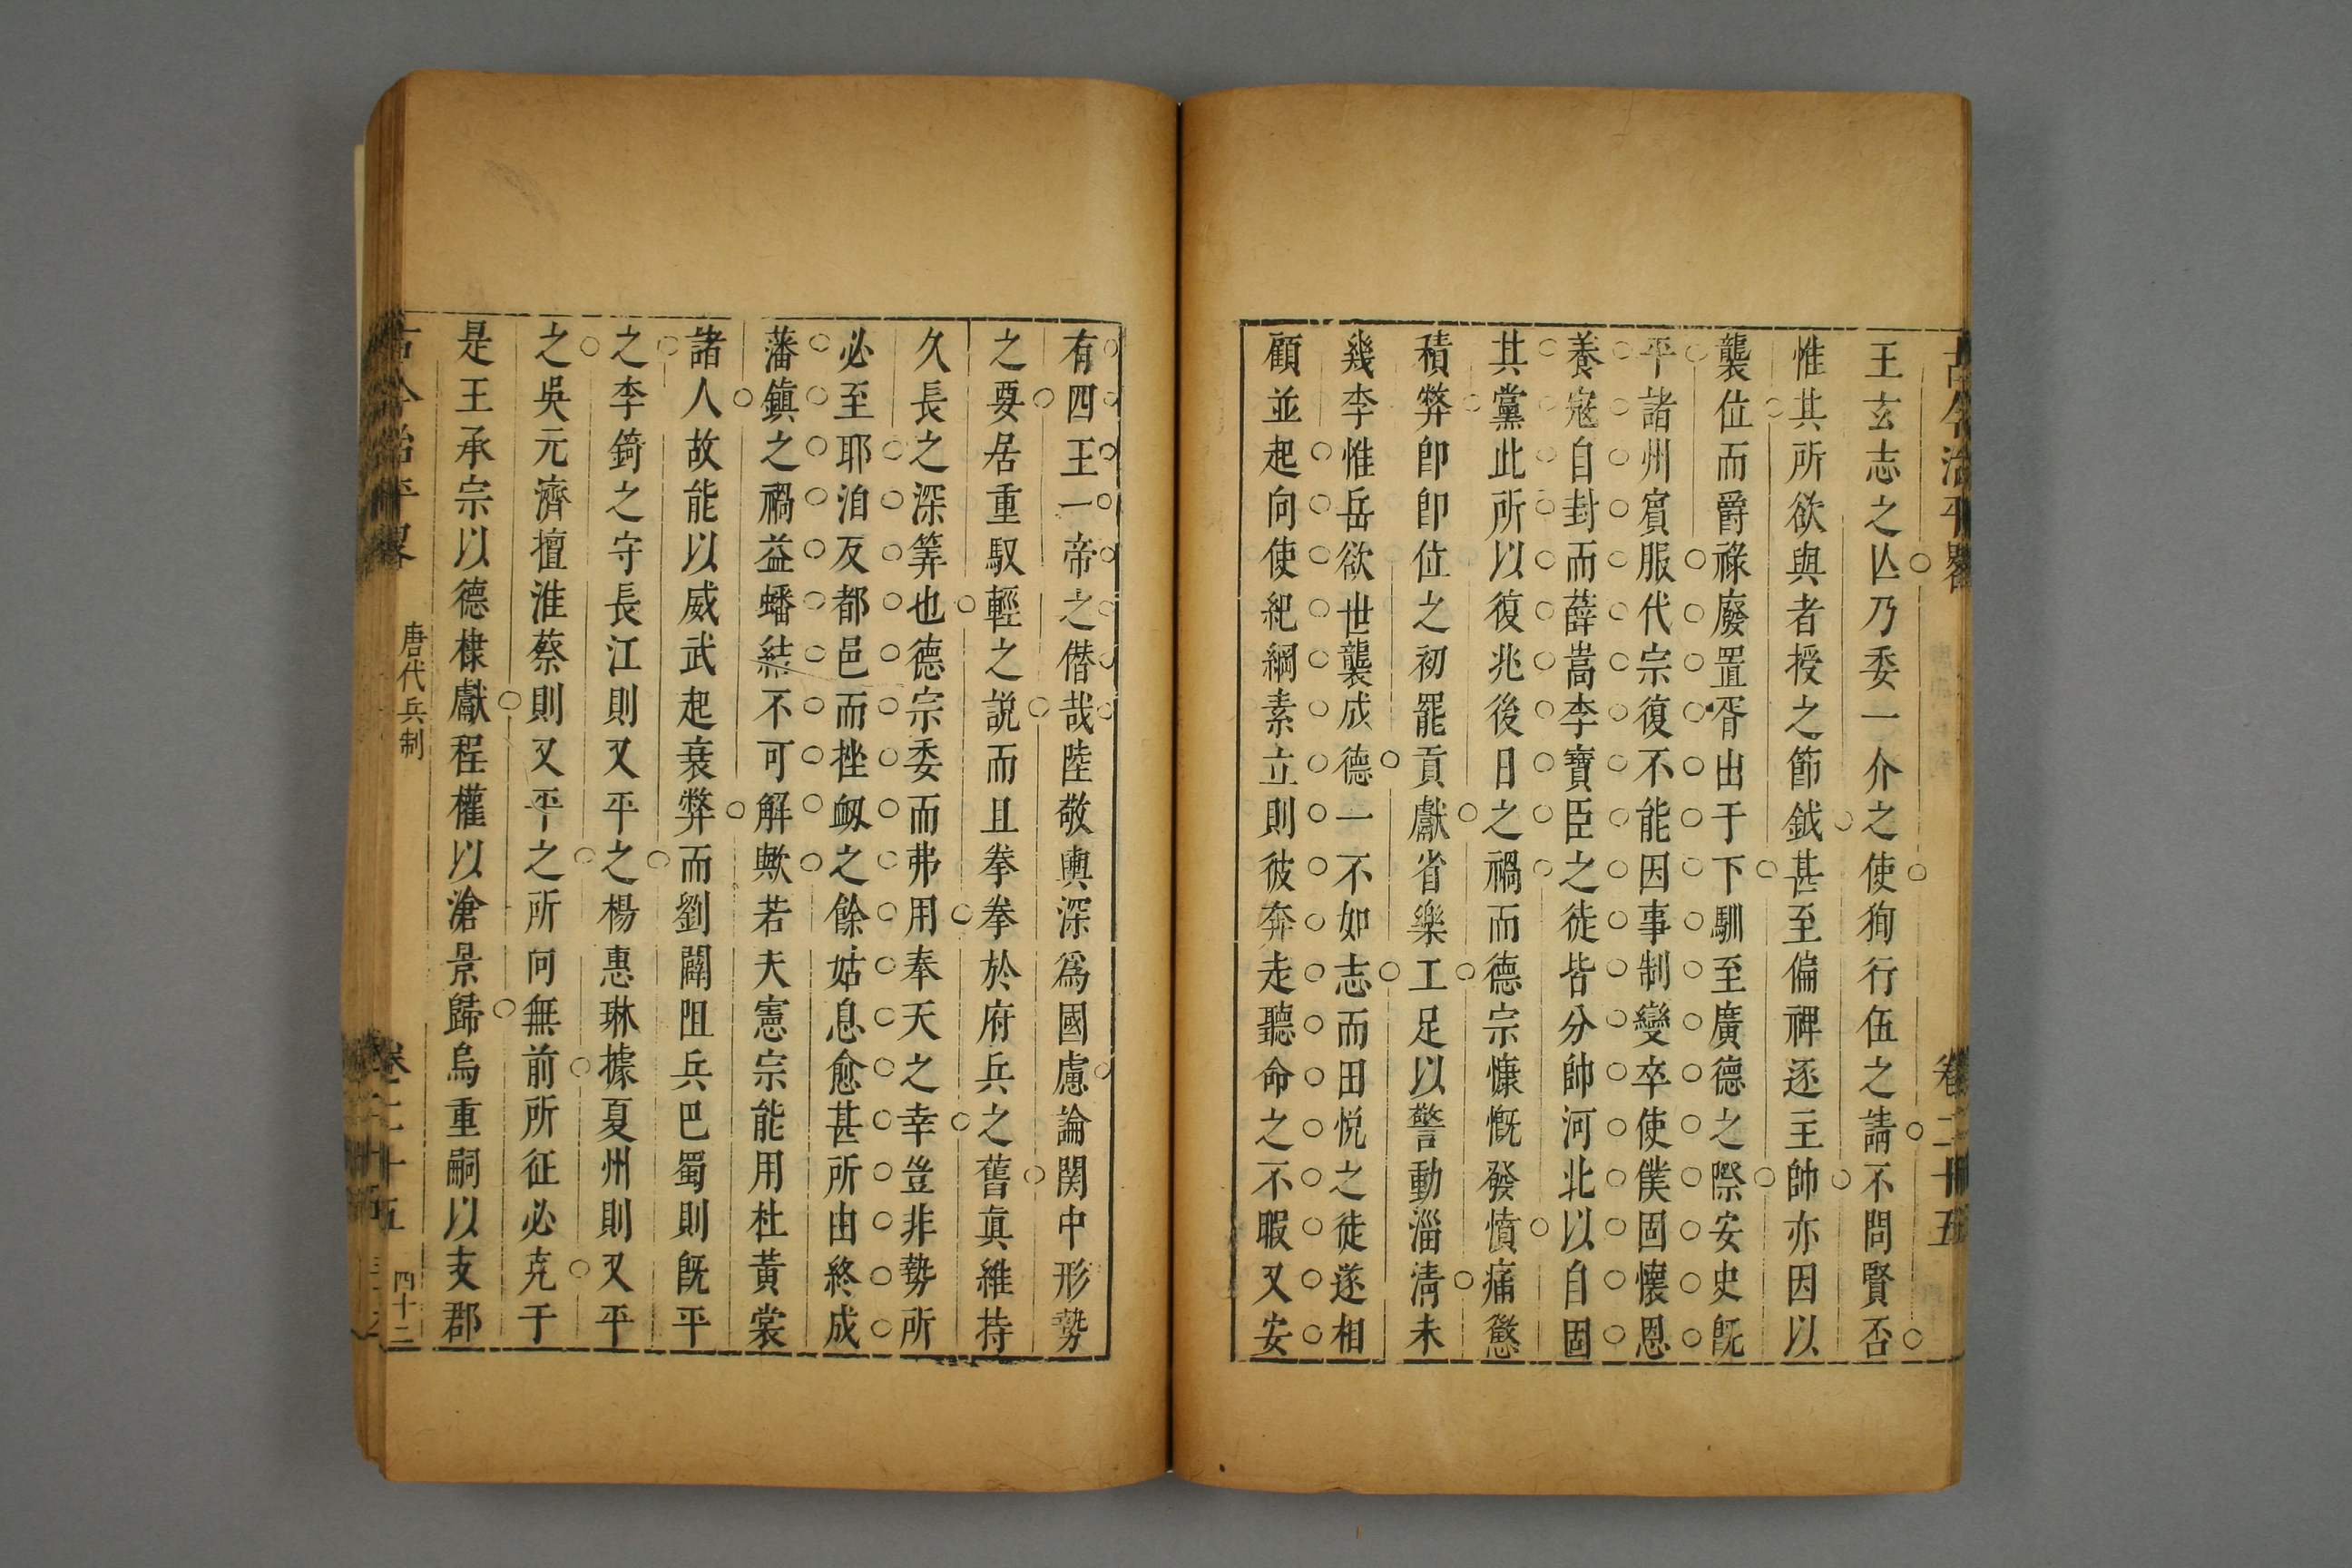 古今治平畧 卷二十五
王玄志之亾乃委一介之使狥行伍之請不問賢否
惟其所欲與者授之節鉞甚至偏裨逐主帥亦因以
襲位而爵祿廢置胥出于下馴至廣德之際安史旣
平諸州賓服代宗復不能因事制變卒使僕固懷恩
養寇自封而薛嵩李寶臣之徒皆分帥河北以自固
其黨此所以復兆後日之禍而德宗慷慨發憤痛懲
積弊卽卽位之初罷貢獻省樂工足以警動淄淸未
幾李惟岳欲世襲成德一不如志而田悅之徒遂相
顧並起向使紀綱素立則彼奔走聽命之不暇又安
有四王一帝之僣哉陸敬輿深爲國慮論関中形勢
之要居重馭輕之說而且拳拳於府兵之舊眞維持
久長之深筭也德宗委而弗用奉天之幸豈非勢所
必至耶洎反都邑而挫衂之餘姑息愈甚所由終成
藩鎮之禍益蟠結不可解歟若夫憲宗能用杜黃裳
諸人故能以威武起衰弊而劉闢阻兵巴蜀則旣平
之李錡之守長江則又平之楊惠琳據夏州則又平
之吳元濟擅淮蔡則又平之所向無前所征必克于
是王承宗以德棣獻程權以滄景歸烏重嗣以支郡
古今治平畧 唐代兵制 卷二十五 四十二